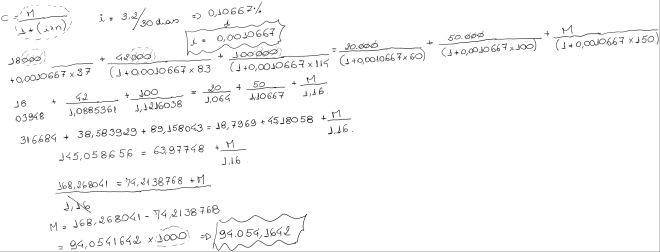 C = M / 1+(i×n)   i = 3,2/30 dias => 0,10667%/d
i = 0,0010667
18000 / +0,0010667×37 + 42000 / (1+0,0010667×83 + 100000 / (1+0,0010667×114 = 20.000 / (1+0,0010667×60) + 50.000 / (1+0,0010667×100) + M / (1+0,0010667×150)
18 / 03948 + 42 / 1,0885361 + 100 / 1,1216038 = 20 / 1,064 + 50 / 1,10667 + M / 1,16.
316684 + 38,583929 + 89,158043 = 18,7969 + 45,18058 + M / 1,16.
145,058656 = 63,97748 + M / 1,16
168,268041 = 74,2138768 + M
1,16
M = 168,268041 - 74,2138768
= 94,0541642 × 1000 => 94.054,1642